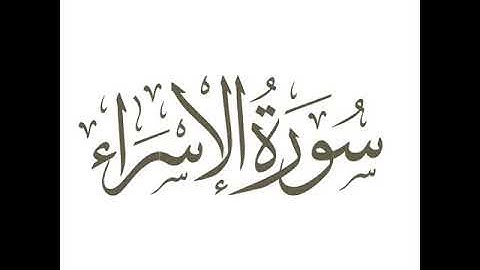 سُورَةُ الإِسْرَاء